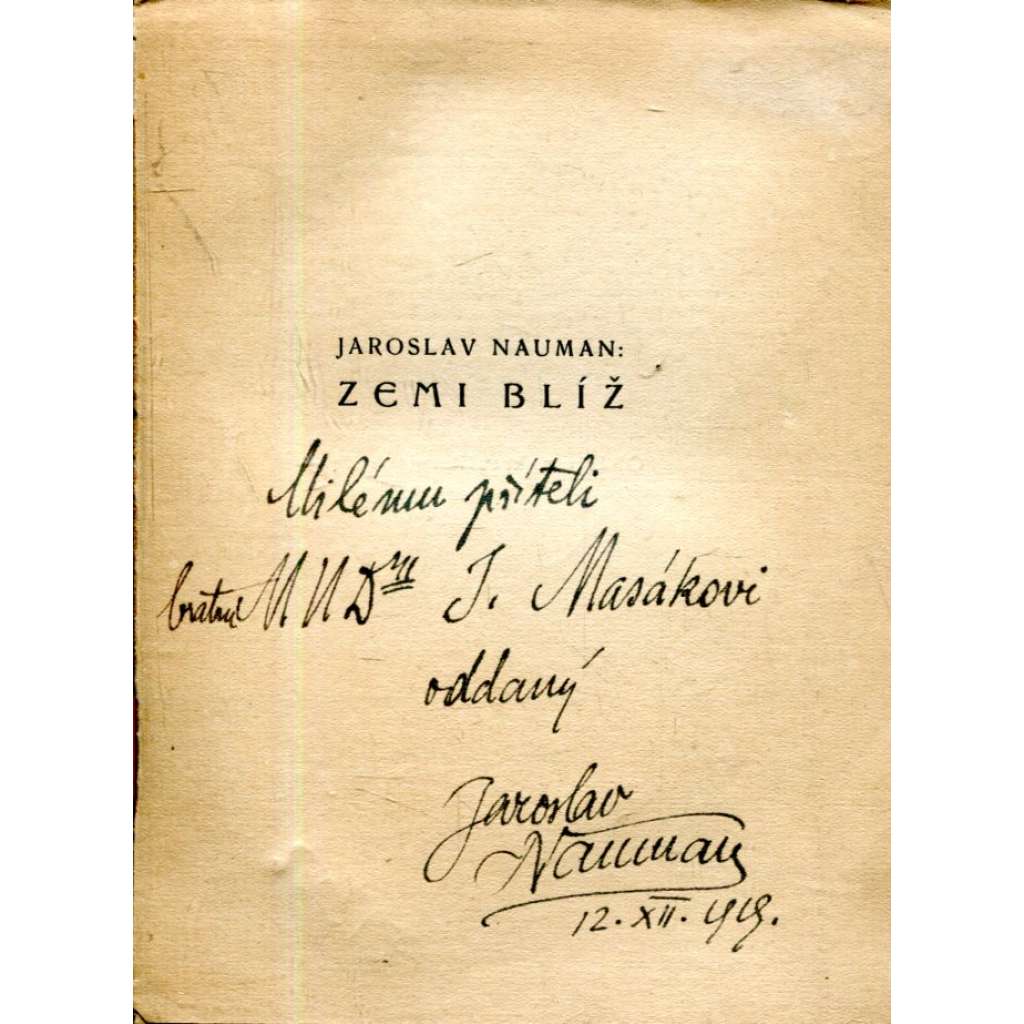 JAROSLAV NAUMAN:
ZEMI BLÍŽ
Milému příteli
bratru MUDru J. Masákovi
oddaný
Jaroslav
Nauman
12. XII. 1919.